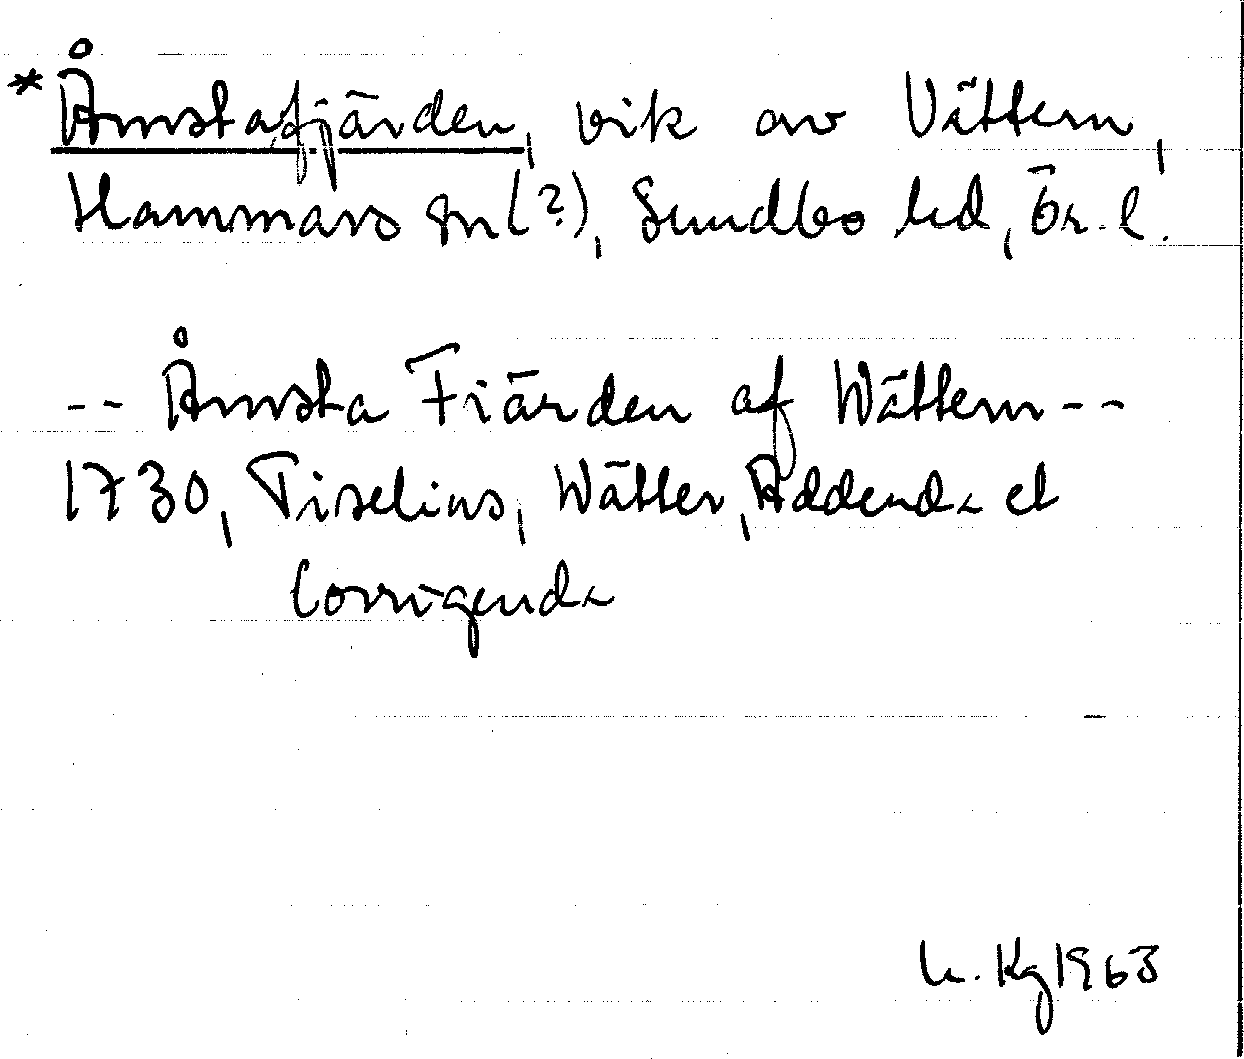 *Åmstafjärden, vik av Vättern,
Hammars sn(?), Sundbo hd, Ör. l.
-- Åmsta Fiärden af Wättern --
1730, Tiselius, Wätter, Addenda et
Corrigenda
Kg 1963